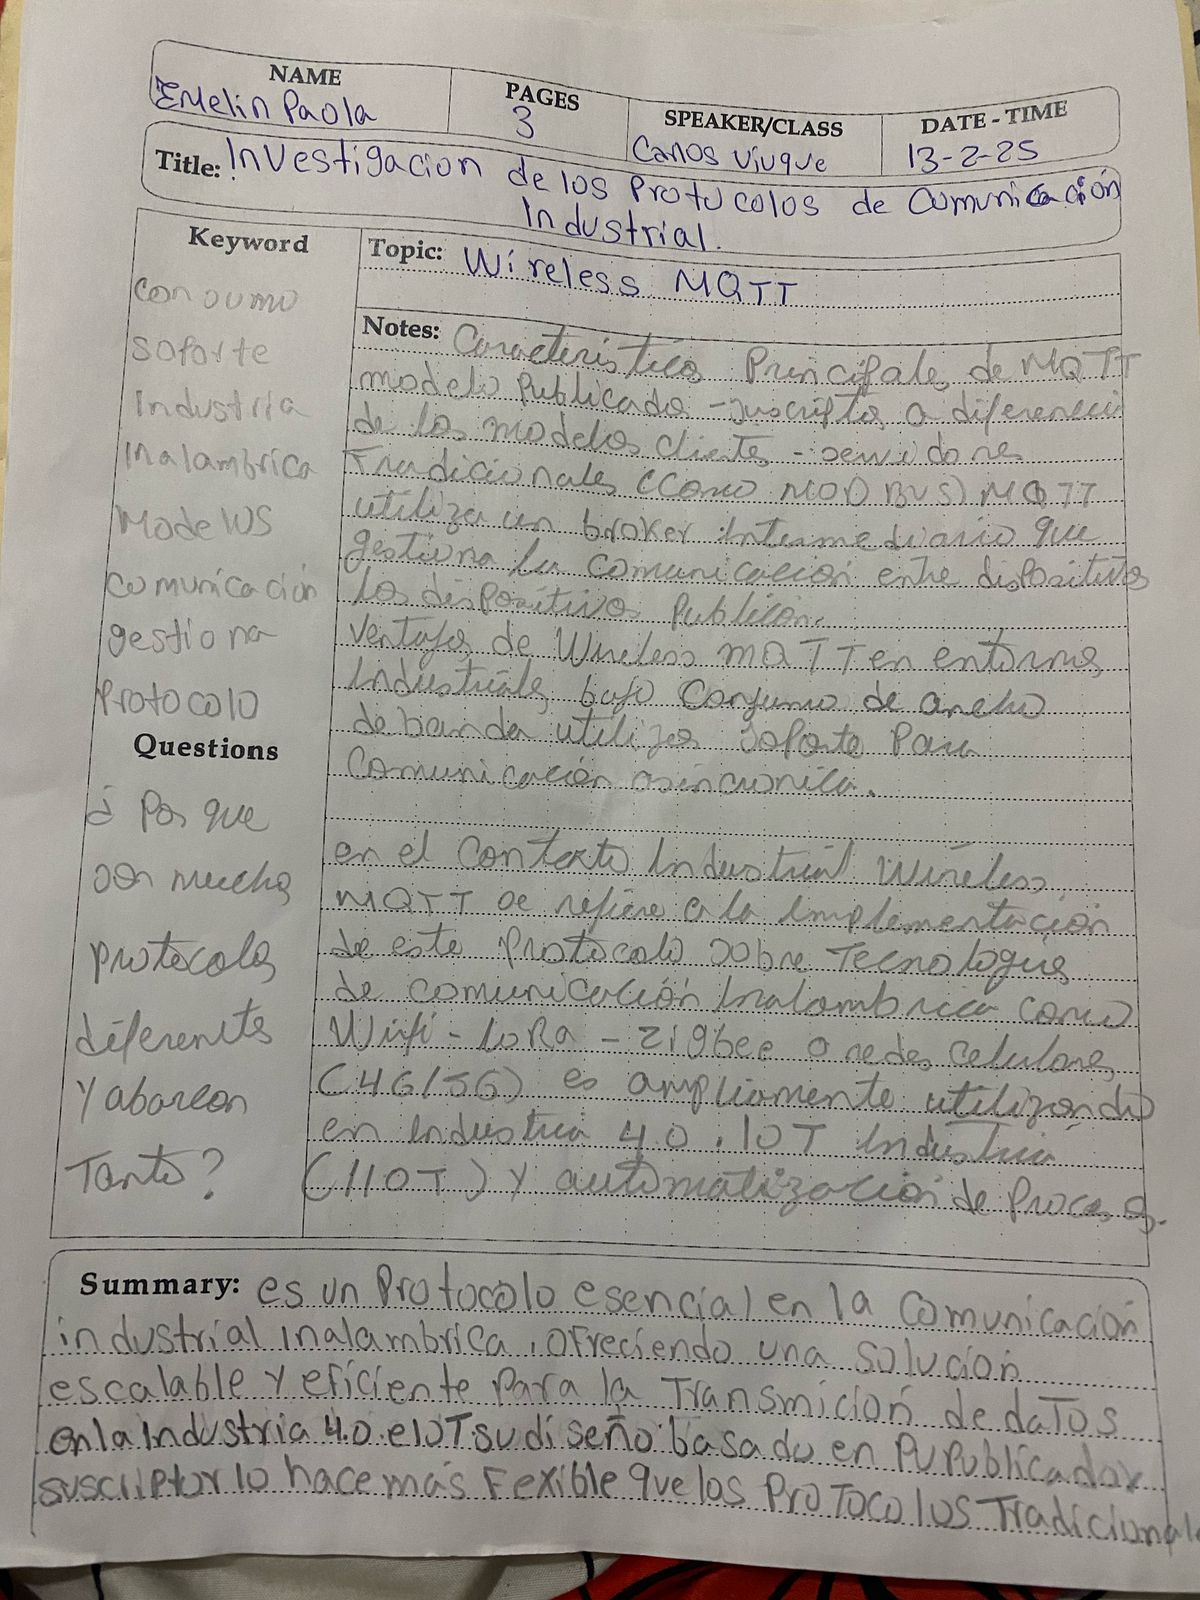 NAME
Emelin Paola
PAGES
3
SPEAKER/CLASS
DATE - TIME
13-2-25
Title: Investigacion de los Protocolos de Comunicación
Industrial.
Keyword
Consumo
Soforte
Industria
Inalambrica
Modelos
comunicación
gestiona
Protocolo
Questions
¿ Por que
son mucho
protocolos
diferentes
Y abarcan
Tanto?
Topic: Wireless MQTT
Notes: Caracteristicas Principales de MQTT
modelo Publicado - suscripto, a diferencia
de los modelos clientes - servidores
Tradicionales (Como MODBUS) MQTT
utiliza un broker intermediario que
gestiona la comunicación entre dispositivos
los dispositivos Publican.
ventajas de Wireless MQTT en entornos
Industriales, bajo Consumo de ancho
de banda utilizar soforte Para
Comunicación asincronica.
en el contexto Industrial Wireless
MQTT se refiere a la implementación
de este Protocolo sobre Tecnologias
de comunicación Inalambrica como
Wifi - LoRa - Zigbee o redes celulares
(4G/5G) es ampliamente utilizando
en Industria 4.0. IOT Industria
(IIOT) Y automatización de Procesos.
Summary: es un Protocolo esencial en la comunicación
industrial inalambrica, ofreciendo una solución
escalable y eficiente Para la Transmición de daTos
en la Industria 4.0. e IOT su diseño basado en Pu Publicador
suscriptor lo hace más Fexible que los ProTocolos Tradicional